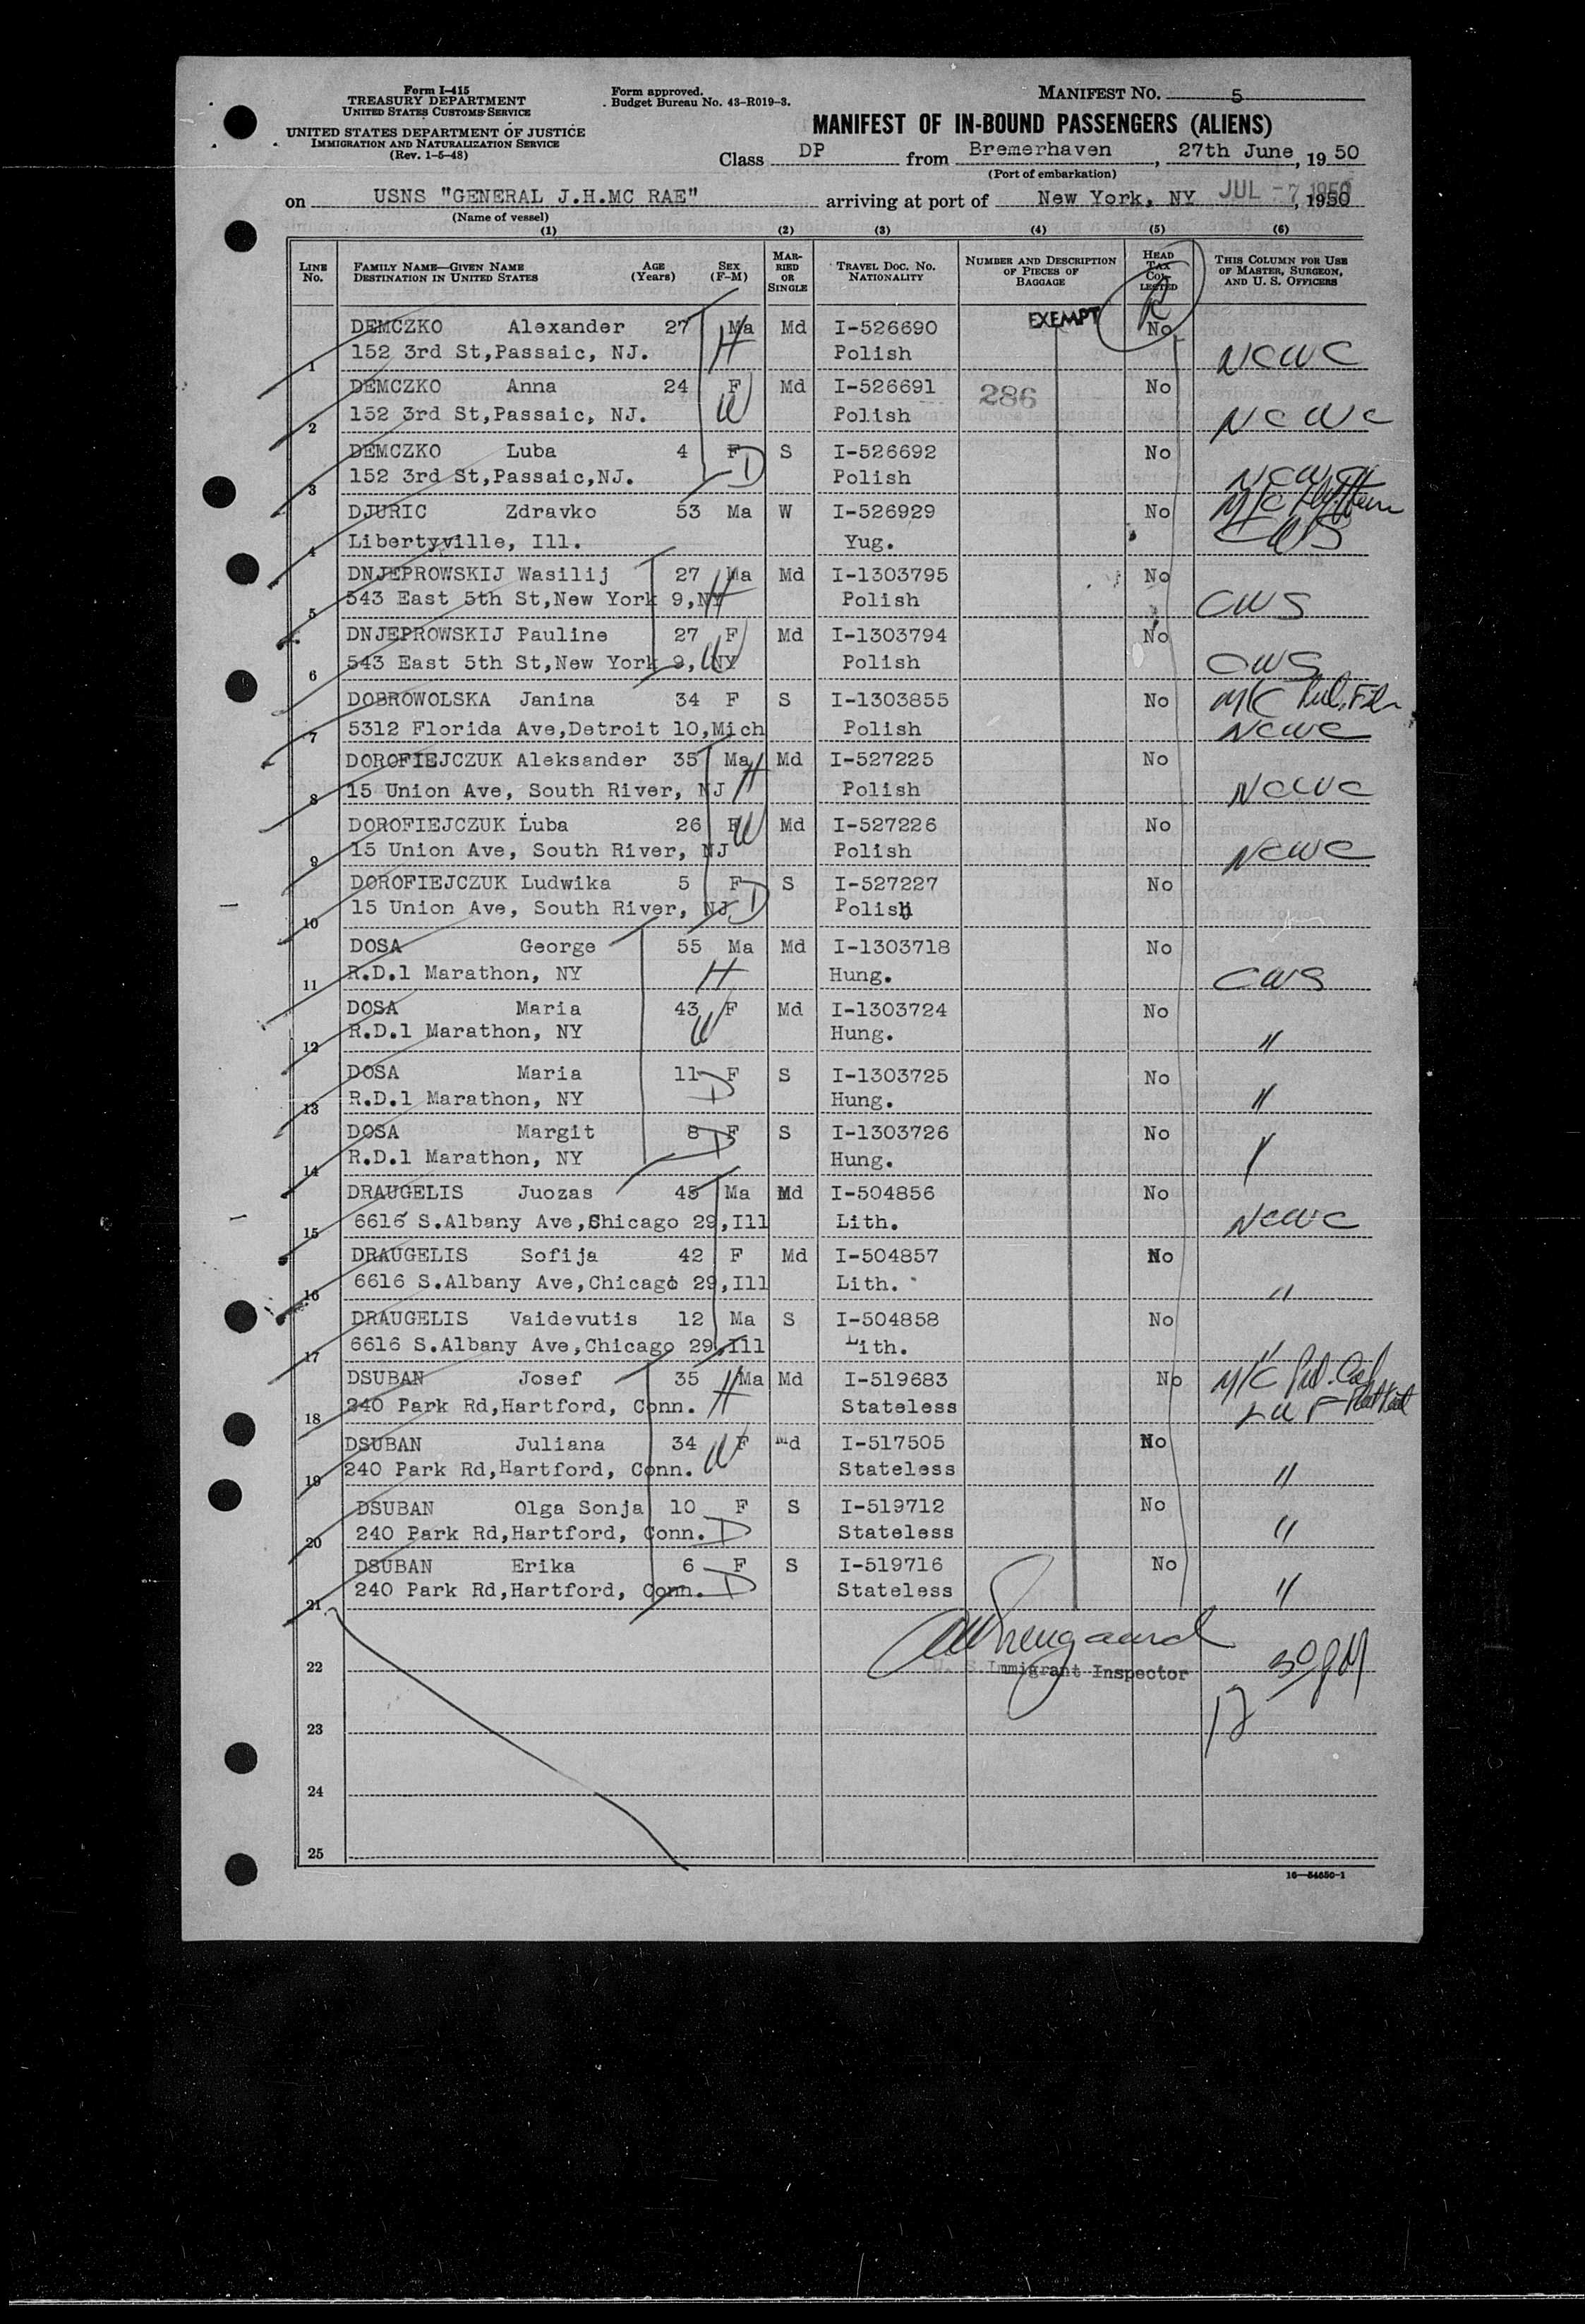 Form I-415
TREASURY DEPARTMENT
UNITED STATES CUSTOMS SERVICE
UNITED STATES DEPARTMENT OF JUSTICE
IMMIGRATION AND NATURALIZATION SERVICE
(Rev. 1-5-48)
Form approved.
Budget Bureau No. 43-R019-3.
MANIFEST NO. 5
MANIFEST OF IN-BOUND PASSENGERS (ALIENS)
Class DP from Bremerhaven, 27th June, 1950
(Port of embarkation)
on USNS "GENERAL J.H.MC RAE" arriving at port of New York, NY JUL -7 1950, 1950
(Name of vessel)
(1) (2) (3) (4) (5) (6)
LINE NO. FAMILY NAME—GIVEN NAME DESTINATION IN UNITED STATES AGE (Years) SEX (F-M) MARRIED OR SINGLE TRAVEL DOC. NO. NATIONALITY NUMBER AND DESCRIPTION OF PIECES OF BAGGAGE HEAD TAX COLLECTED THIS COLUMN FOR USE OF MASTER, SURGEON, AND U. S. OFFICERS
EXEMPT
DEMCZKO Alexander 27 Ma H Md I-526690 No
1 152 3rd St,Passaic, NJ. Polish NCWC
DEMCZKO Anna 24 F W Md I-526691 286 No
2 152 3rd St,Passaic, NJ. Polish NCWC
DEMCZKO Luba 4 F D S I-526692 No
3 152 3rd St,Passaic,NJ. Polish NCWC
DJURIC Zdravko 53 Ma W I-526929 No M/C
4 Libertyville, Ill. Yug. CWS
DNJEPROWSKIJ Wasilij 27 Ma H Md I-1303795 No
5 543 East 5th St,New York 9,NY Polish CWS
DNJEPROWSKIJ Pauline 27 F W Md I-1303794 No
6 543 East 5th St,New York 9, NY Polish CWS
DOBROWOLSKA Janina 34 F S I-1303855 No M/C
7 5312 Florida Ave,Detroit 10,Mich Polish NCWC
DOROFIEJCZUK Aleksander 35 Ma H Md I-527225 No
8 15 Union Ave, South River, NJ Polish NCWC
DOROFIEJCZUK Luba 26 F W Md I-527226 No
9 15 Union Ave, South River, NJ Polish NCWC
DOROFIEJCZUK Ludwika 5 F D S I-527227 No
10 15 Union Ave, South River, NJ Polish
DOSA George 55 Ma H Md I-1303718 No
11 R.D.1 Marathon, NY Hung. CWS
DOSA Maria 43 F W Md I-1303724 No
12 R.D.1 Marathon, NY Hung. "
DOSA Maria 11 F D S I-1303725 No
13 R.D.1 Marathon, NY Hung. "
DOSA Margit 8 F D S I-1303726 No
14 R.D.1 Marathon, NY Hung.
DRAUGELIS Juozas 45 Ma Md I-504856 No
15 6616 S.Albany Ave,Chicago 29,Ill Lith. NCWC
DRAUGELIS Sofija 42 F Md I-504857 No
16 6616 S.Albany Ave,Chicago 29,Ill Lith. "
DRAUGELIS Vaidevutis 12 Ma S I-504858 No
17 6616 S.Albany Ave,Chicago 29,Ill Lith. "
DSUBAN Josef 35 Ma H Md I-519683 No M/C
18 240 Park Rd,Hartford, Conn. Stateless
DSUBAN Juliana 34 F W Md I-517505 No
19 240 Park Rd,Hartford, Conn. Stateless "
DSUBAN Olga Sonja 10 F D S I-519712 No
20 240 Park Rd,Hartford, Conn. Stateless "
DSUBAN Erika 6 F D S I-519716 No
21 240 Park Rd,Hartford, Conn. Stateless "
22 U. S. Immigrant Inspector
23
24
25
16—54650-1